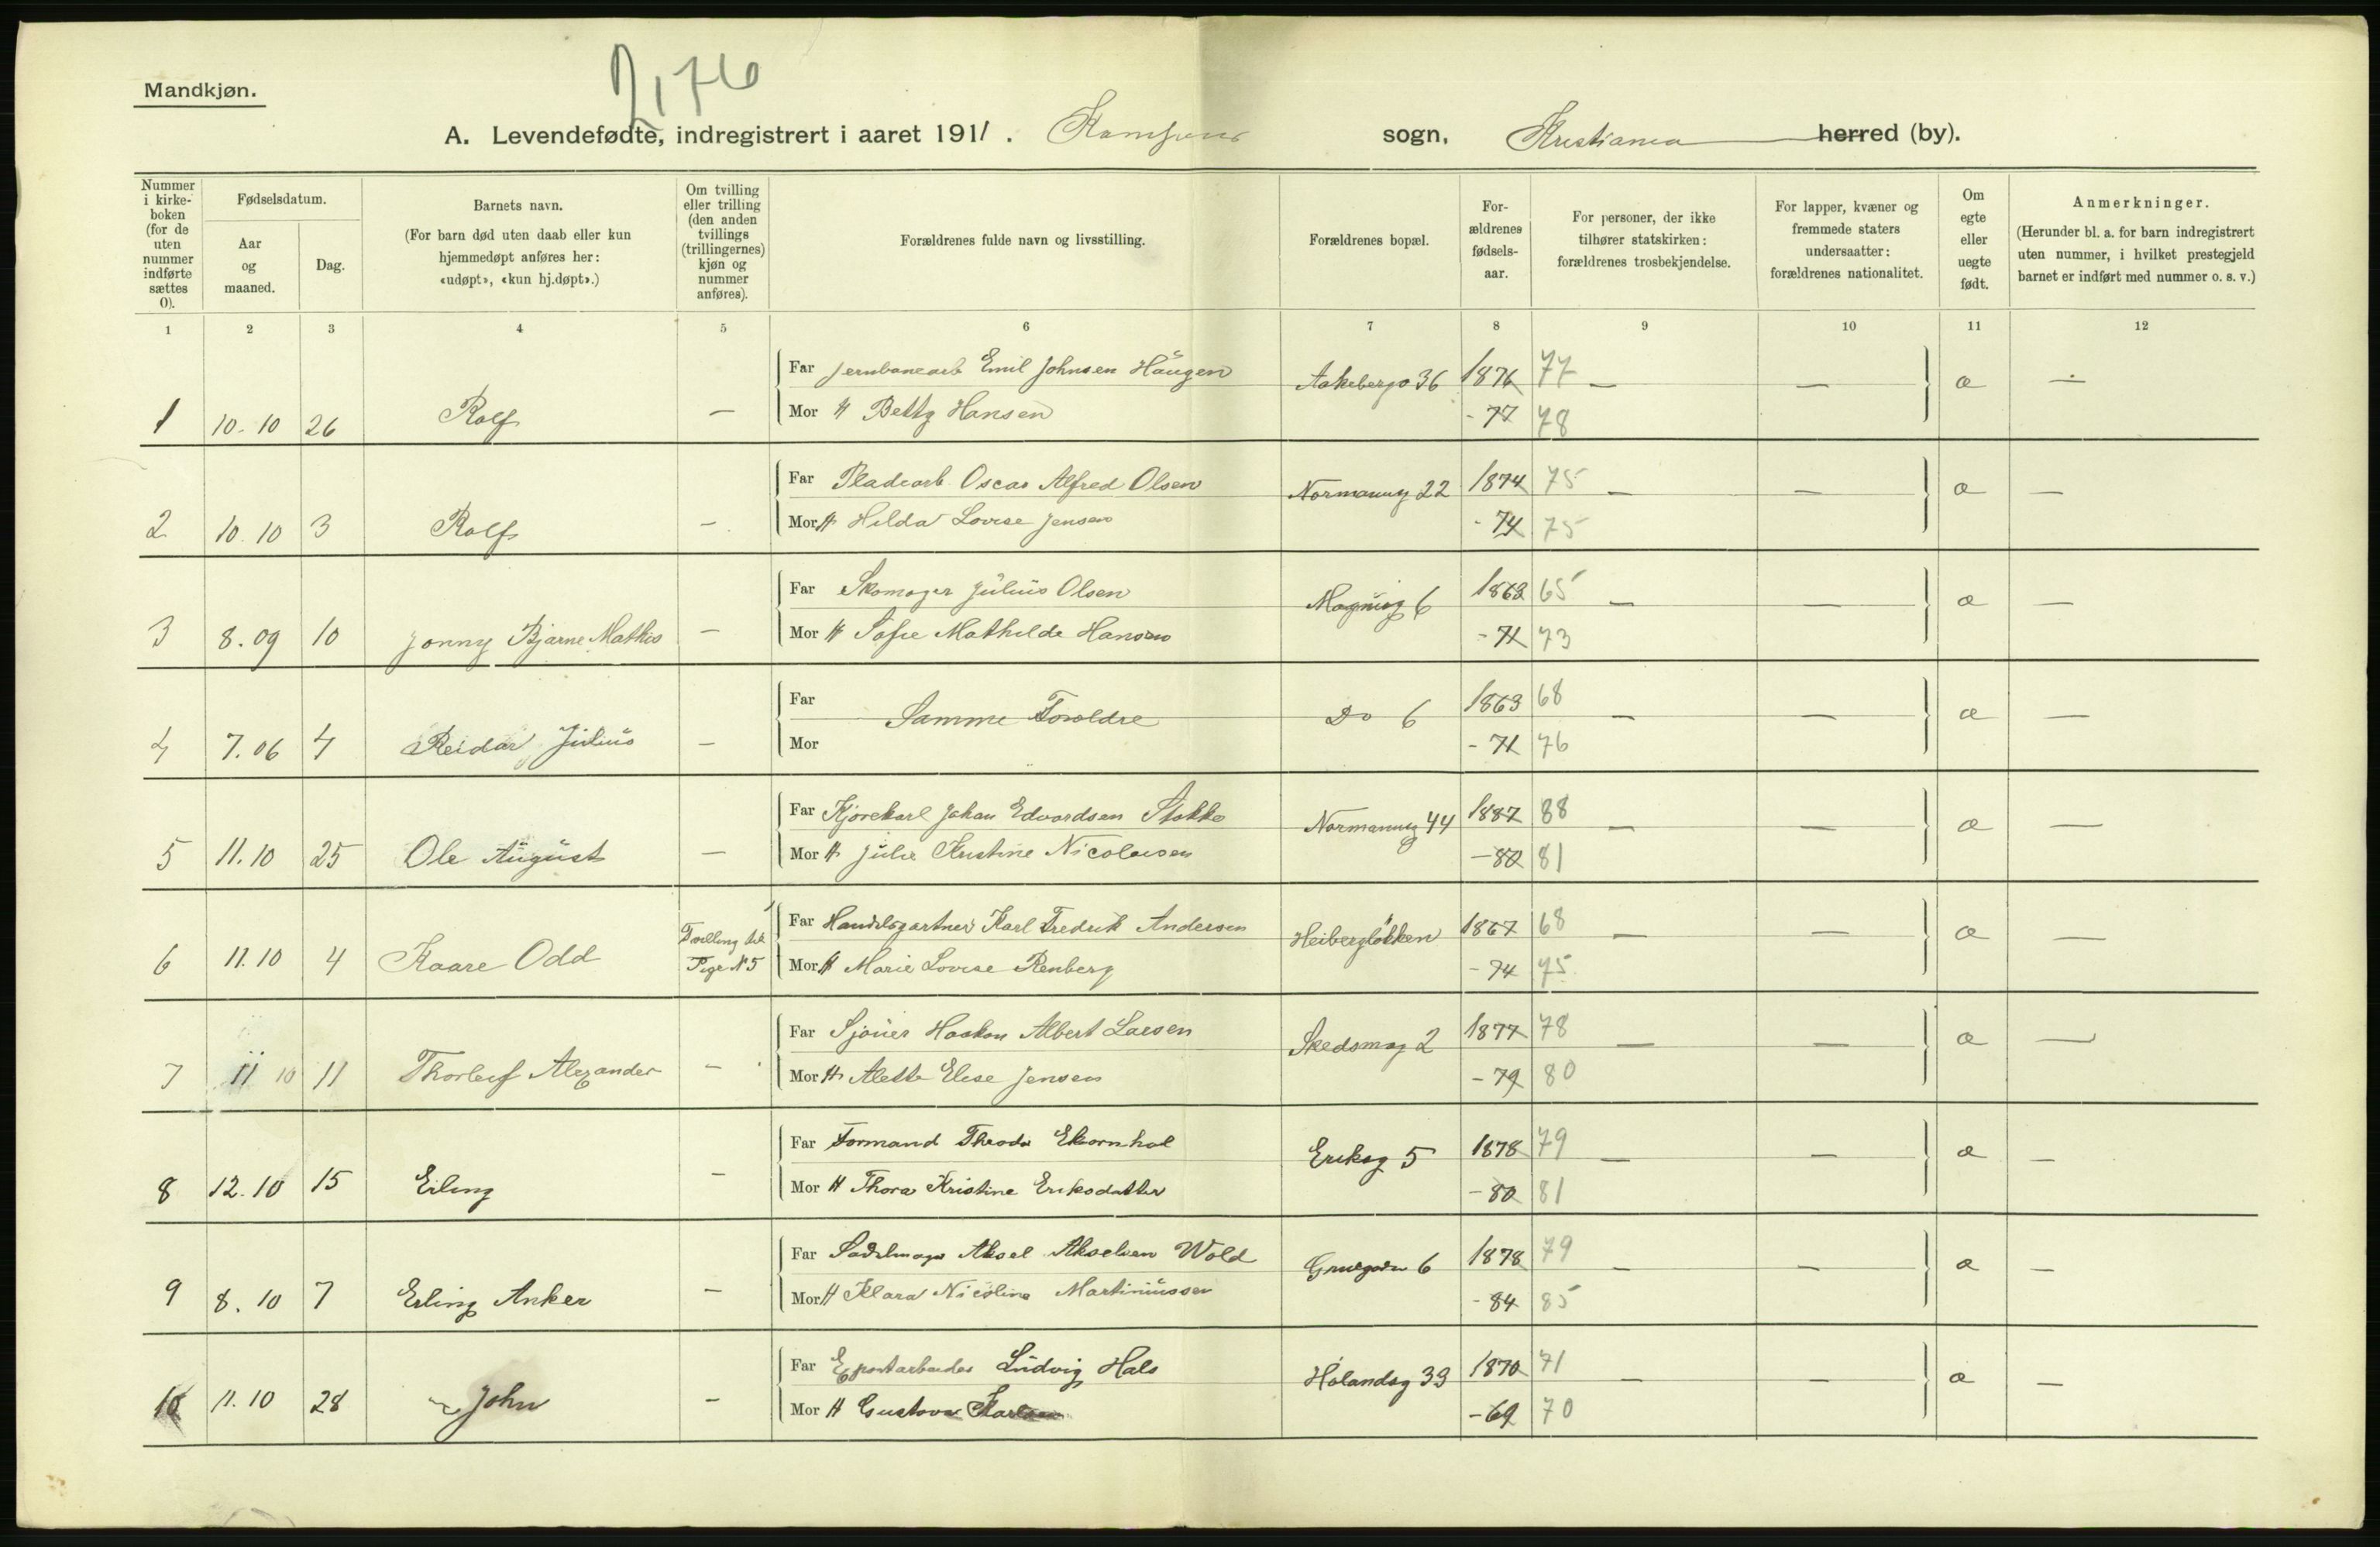 Mandkjøn.
2176
A. Levendefødte, indregistrert i aaret 1911. Kampens sogn, Kristiania herred (by).
Nummer i kirkeboken (for de uten nummer indførte sættes 0).
Fødselsdatum.
Aar og maaned.
Dag.
Barnets navn.
(For barn død uten daab eller kun hjemmedøpt anføres her: «udøpt», «kun hj.døpt».)
Om tvilling eller trilling (den anden tvillings (trillingernes) kjøn og nummer anføres).
Forældrenes fulde navn og livsstilling.
Forældrenes bopæl.
Forældrenes fødselsaar.
For personer, der ikke tilhører statskirken: forældrenes trosbekjendelse.
For lapper, kvæner og fremmede staters undersaatter: forældrenes nationalitet.
Om egte eller uegte født.
Anmerkninger.
(Herunder bl. a. for barn indregistrert uten nummer, i hvilket prestegjeld barnet er indført med nummer o. s. v.)
1 2 3 4 5 6 7 8 9 10 11 12
Far Jernbanearb Emil Johnsen Haugen Aakebergv 36 1876 77 — — æ —
1 10.10 26 Rolf — Mor H Betty Hansen - 77 78
Far Pladearb Oscar Alfred Olsen Normanng 22 1874 75 — — æ —
2 10.10 3 Rolf — Mor H Hilda Lovise Jensen - 74 75
Far Skomager Julius Olsen Magnusg 6 1863 65 — — æ —
3 8.09 10 Jonny Bjarne Mathis — Mor H Sofie Mathilde Hansen - 71 73
Far Samme Foreldre Do 6 1863 68 — — æ —
4 7.06 4 Reidar Julius — Mor - 71 76
Far Kjørekarl Johan Edvardsen Stokke Normanng 44 1887 88 — — æ —
5 11.10 25 Ole August — Mor H Julie Kristine Nicolaisen - 80 81
Far Handelsgartner Karl Fredrik Andersen Heibergløkken 1867 68 — — æ —
6 11.10 4 Kaare Odd Tvilling til Pige N 5 Mor H Marie Lovise Renberg - 74 75
Far Sjøuer Haakon Albert Larsen Skedsmog 2 1877 78 — — æ —
7 11 10 11 Thorleif Alexander — Mor H Alette Elise Jensen - 79 80
Far Formand Theodor Ekornhol Eriksg 5 1878 79 — — æ —
8 12.10 15 Erling — Mor H Thora Kristine Eriksdatter - 80 81
Far Sadelmager Aksel Akselsen Wold 6 1878 79 — — æ —
9 8.10 7 Erling Anker — Mor H Klara Nicoline Martiniussen - 84 85
Far Ludvig Hals Hølandsg 33 1870 71 — — æ —
10 11.10 28 John — Mor H Gustava Karlsen - 69 70